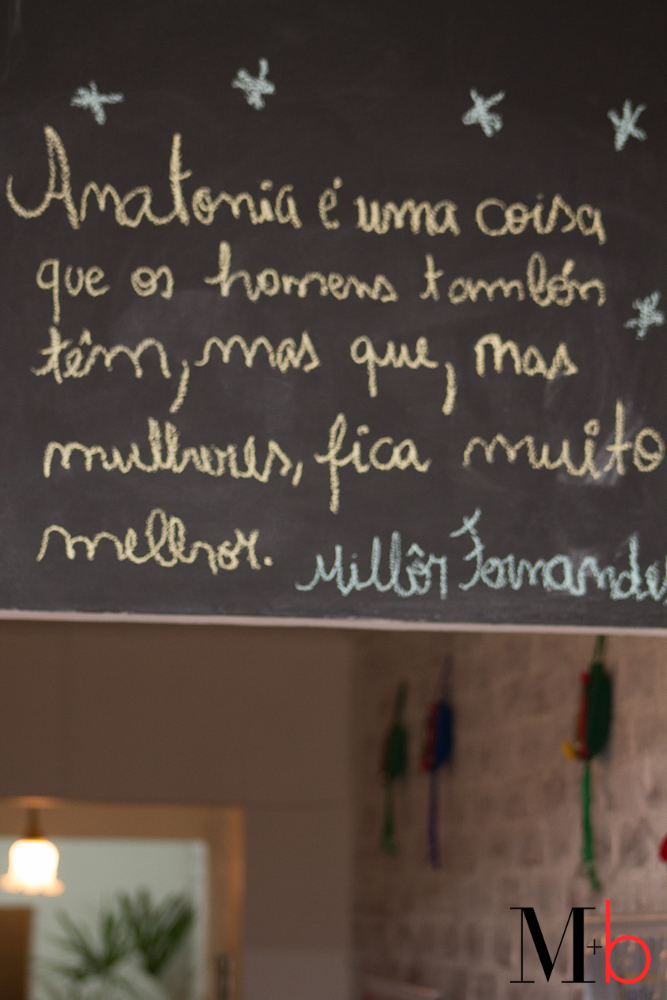 Anatonia é uma coisa
que os homens também
têm, mas que, nas
mulheres, fica muito
melhor.
Millôr Fernandes
M+b